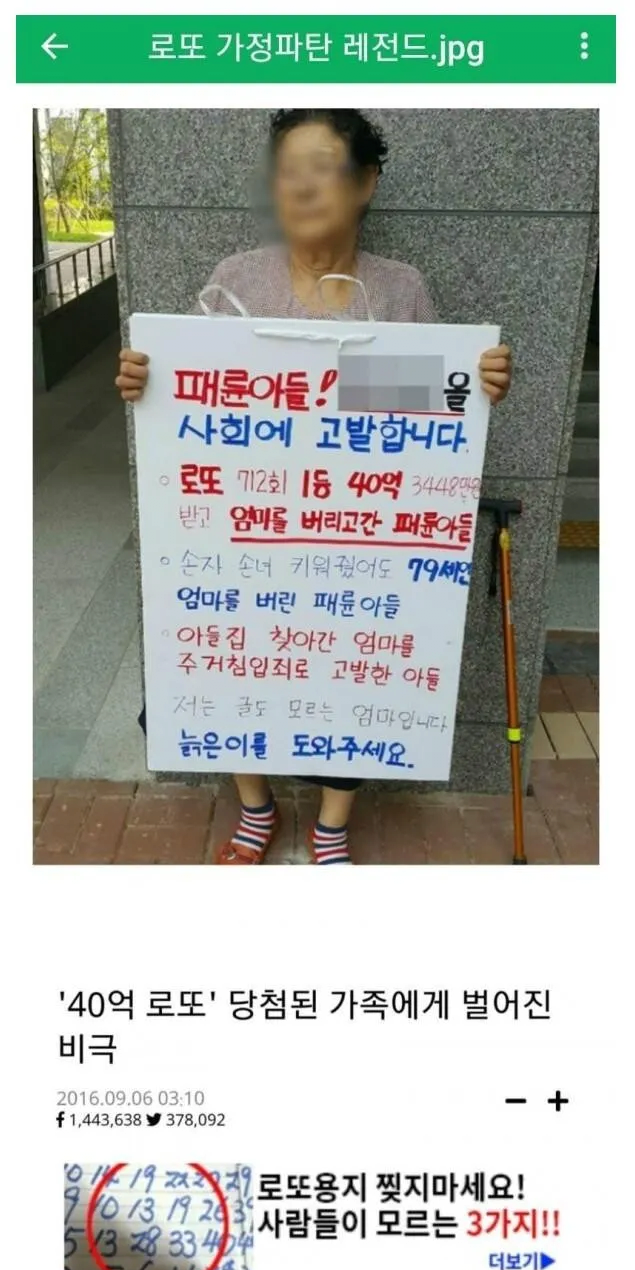 로또 가정파탄 레전드.jpg
패륜아들! 을
사회에 고발합니다.
로또 712회 1등 40억 3448만원
받고 엄마를 버리고간 패륜아들
손자 손녀 키워줬어도 79세인
엄마를 버린 패륜아들
아들집 찾아간 엄마를
주거침입죄로 고발한 아들
저는 글도 모르는 엄마입니다
늙은이를 도와주세요.
'40억 로또' 당첨된 가족에게 벌어진
비극
2016.09.06 03:10
1,443,638 378,092
로또용지 찢지마세요!
사람들이 모르는 3가지!!
더보기▶
10 13 19
13 28 33